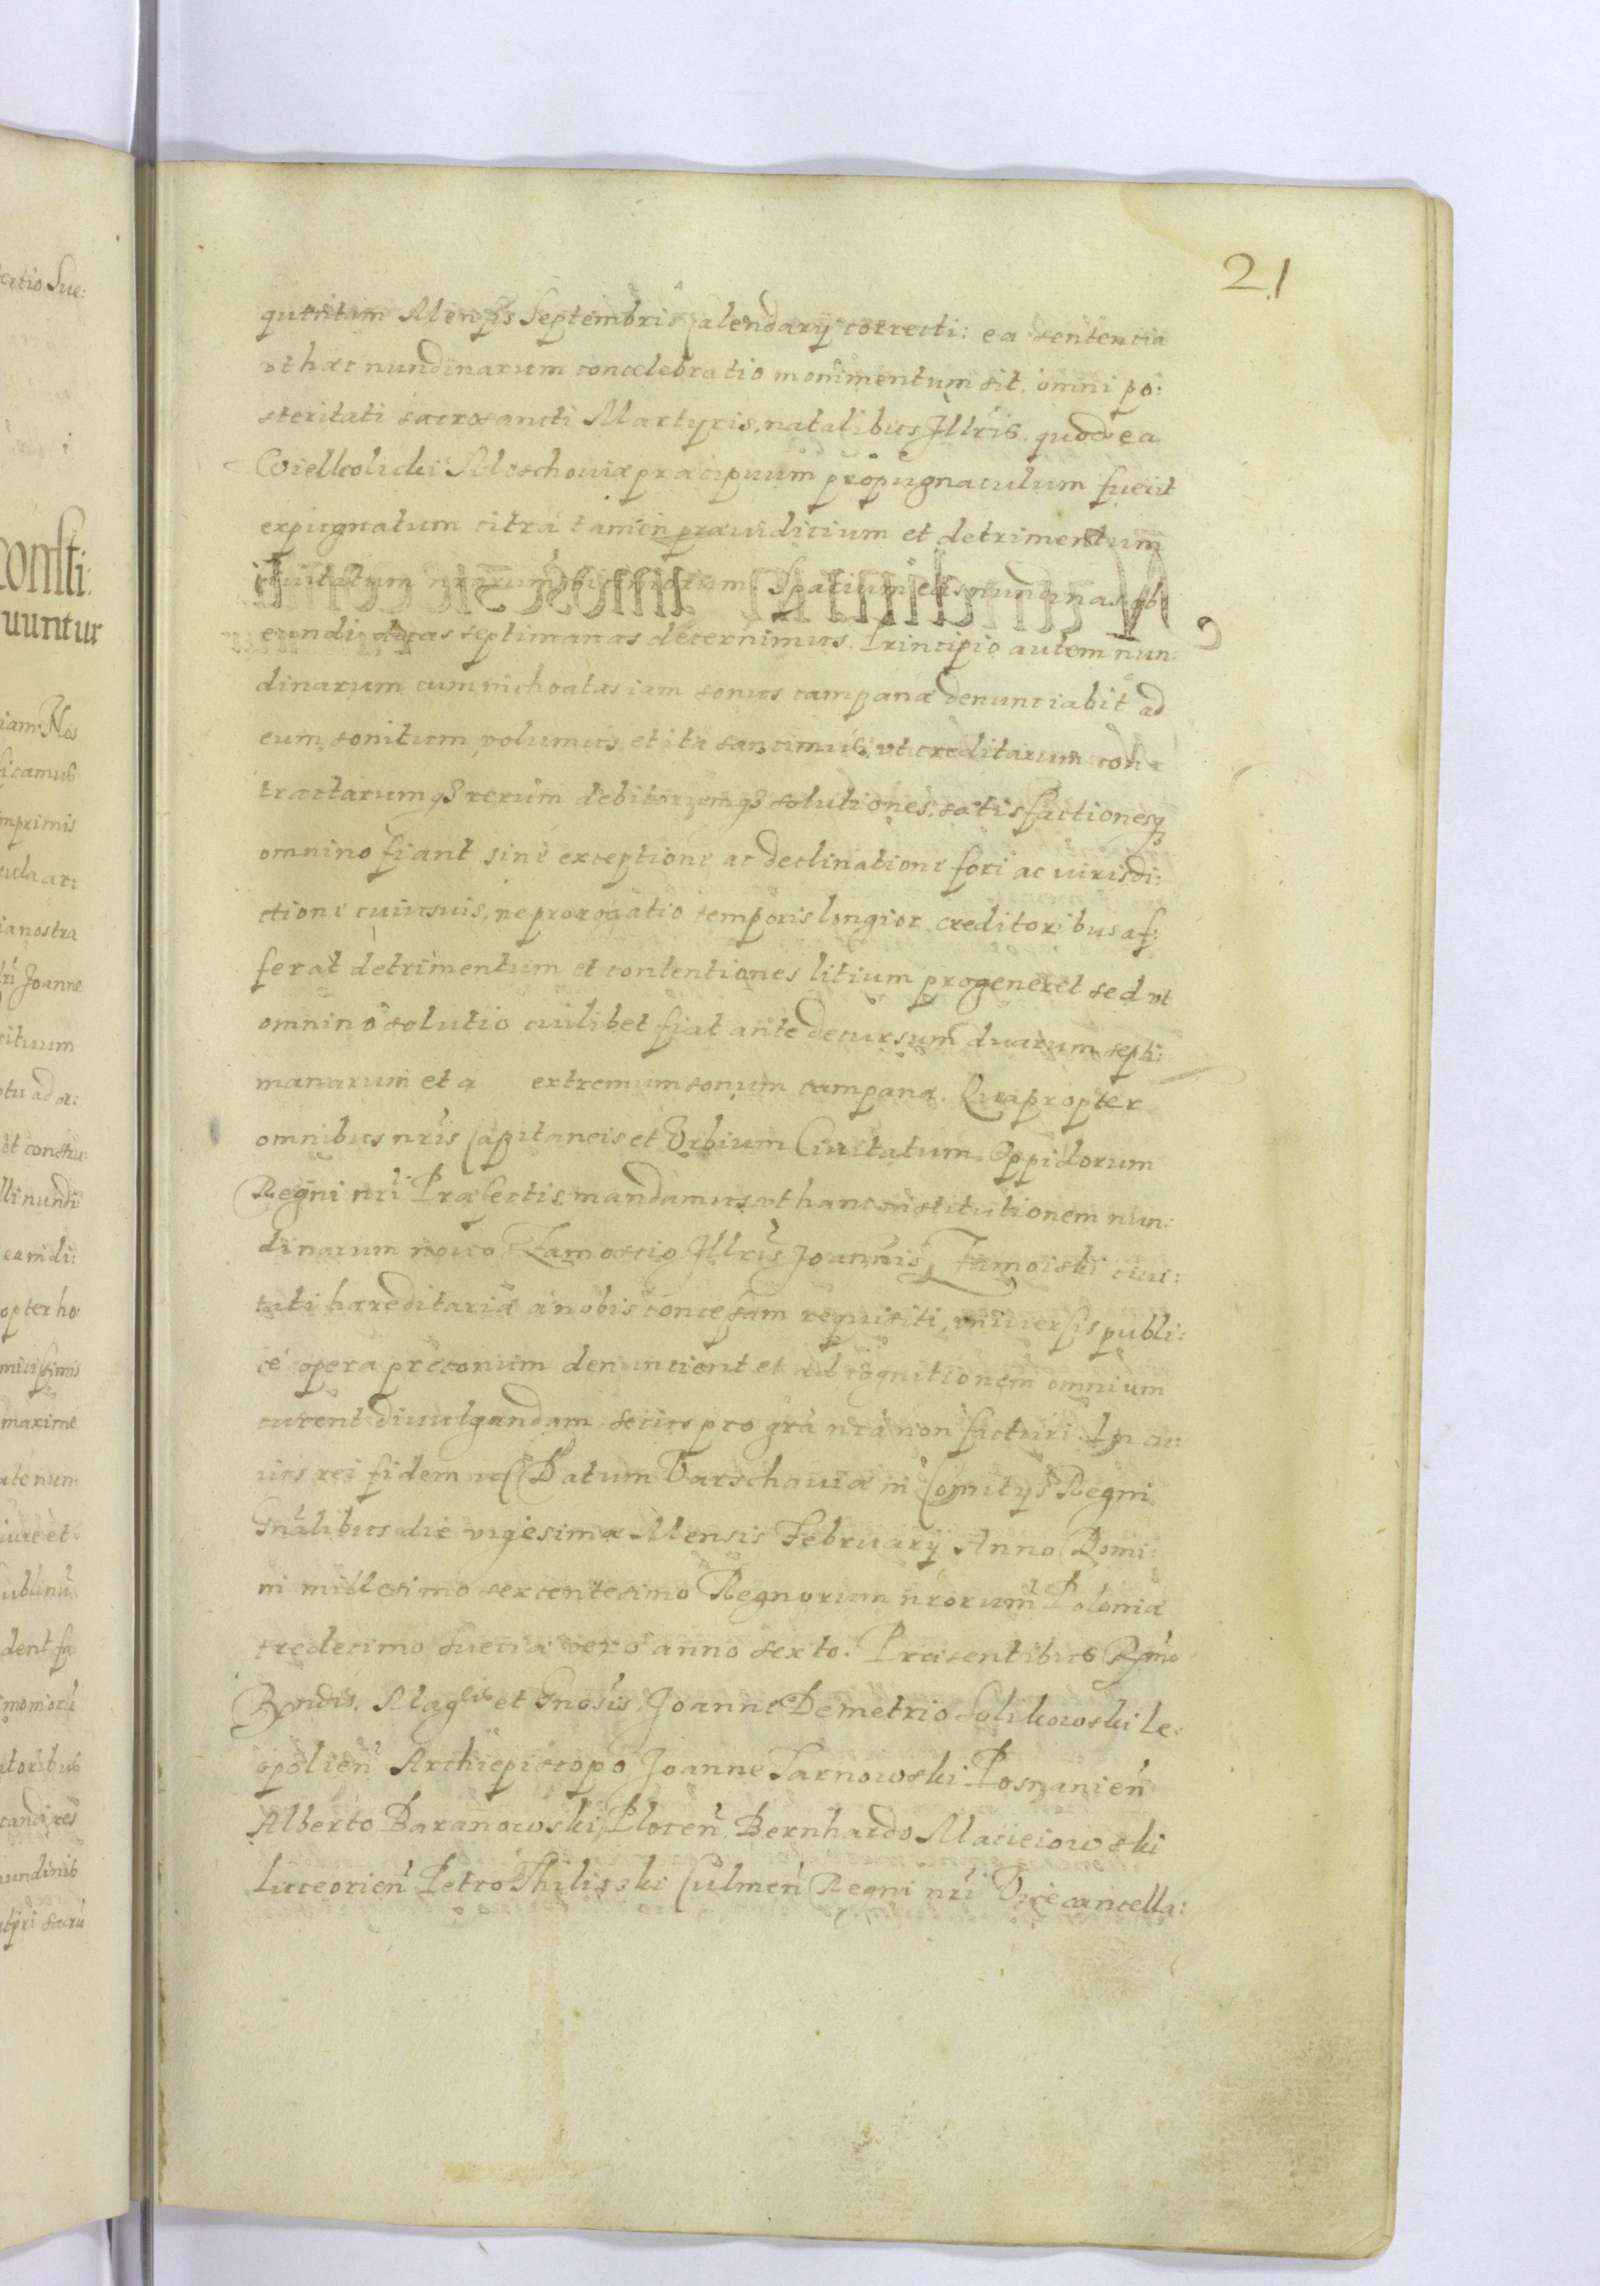 21
quentem Mensis Septembris Calendarij correcti: ea sententia
vt hæc nundinarum concelebratio monimentum sit omni po:
steritati sacrosancti Martyris, natalibus Jllris quod ea
Wielkoluki Moschouiæ præcipuum propugnaculum fuerit
expugnatum citra tamen præiudicium et detrimentum
ciuitatum nrarum vicinarum Spatium eas nundinas ob
eundi duas septimanas decernimus. Principio autem nun:
dinarum cum inchoatas iam sonus campanæ denunciabit ad
eum sonitum volumus et ita sancimus, vt creditarum con
tractarumq3 rerum debitorumq3 solutiones, satisfactionesq3
omnino fiant sine exceptione ac declinatione fori ac iurisdi:
ctione cuiusuis, ne prorogatio temporis longior creditoribus af:
ferat detrimentum et contentiones litium progeneret sed vt
omnino solutio cuilibet fiat ante decursum duarum septi:
manarum et a extremum sonum campanæ. Quapropter
omnibus nris Capitaneis et Vrbium Ciuitatum, Oppidorum
Regni nri Præfectis mandamus vt hanc institutionem nun:
dinarum nouo Zamoscio Jllris Joannis Zamoiski ciui:
tati hæreditariæ a nobis concessam requisiti, vniuersis publi:
ce opera præconum denuncient et ad cognitionem omnium
curent diuulgandam secus pro gra nra non facturi. Jn cu:
ius rei fidem Datum Varschauiæ in Comitijs Regni
Gnalibus die vigesima Mensis Februarij Anno Domi:
ni millesimo sexcentesimo Regnorum nrorum Poloniæ
tredecimo Sueciæ vero anno sexto. Præsentibus Rmo
Rndis, Magcis et Gnosis Joanne Demetrio Solikowski Le:
opolien Archiepiscopo Joanne Tarnowski Posnanien
Alberto Baranowski Plocen, Bernhardo Macieiowski
Luceorien Petro Thilicki Culmen Regni nri Vicecancella: